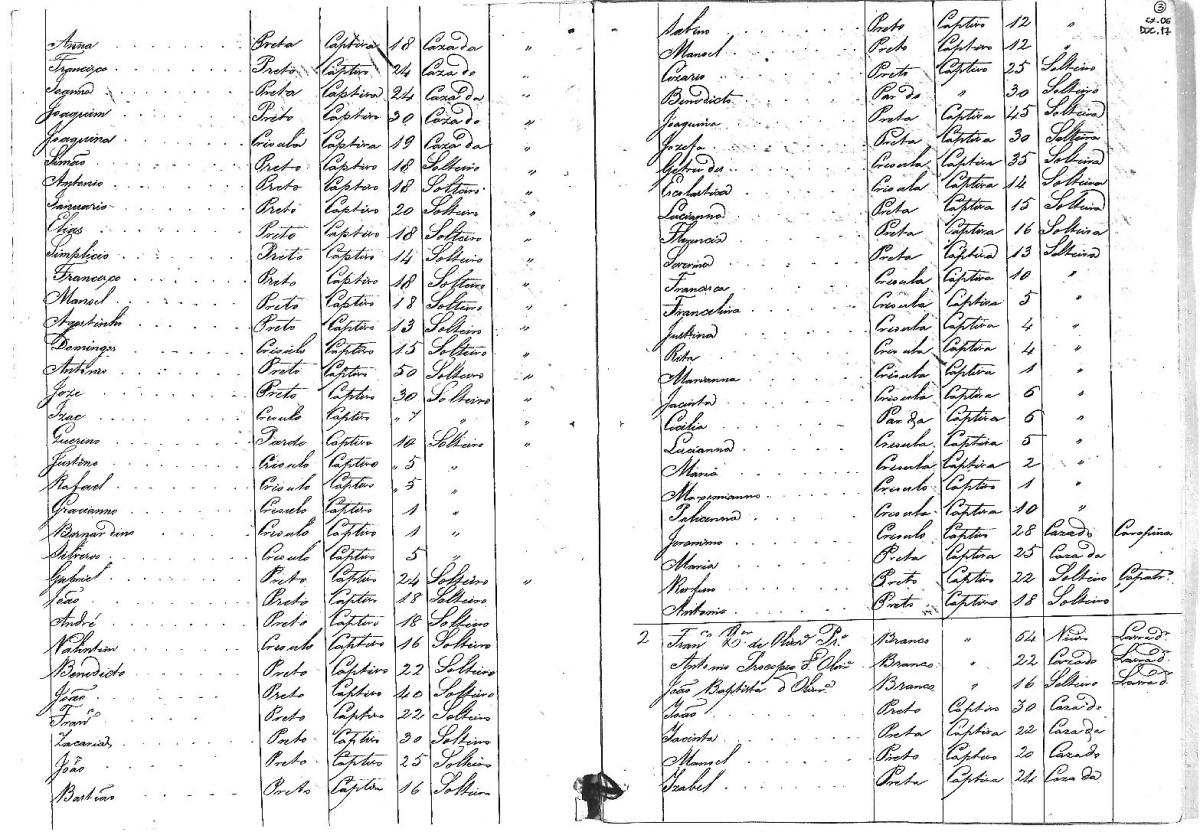 Anna Preta Captiva 18 Cazada "
Francisco Preto Captivo 24 Cazado "
Joanna Preta Captiva 24 Cazada "
Joaquim Preto Captivo 30 Cazado "
Joaquina Creoula Captiva 19 Cazada "
Simão Preto Captivo 18 Solteiro "
Antonio Preto Captivo 18 Solteiro "
Januario Preto Captivo 20 Solteiro "
Elias Preto Captivo 18 Solteiro "
Simplicio Preto Captivo 14 Solteiro "
Francisco Preto Captivo 18 Solteiro "
Manoel Preto Captivo 18 Solteiro "
Agostinho Preto Captivo 13 Solteiro "
Domingos Creoulo Captivo 15 Solteiro "
Antonio Preto Captivo 50 Solteiro "
Joze Preto Captivo 30 Solteiro "
Izac Creoulo Captivo " 7 " "
Guerino Pardo Captivo 10 Solteiro "
Justino Creoulo Captivo " 5 "
Rafael Creoulo Captivo " 5 "
Gracianno Creoulo Captivo 1 "
Bernardino Creoulo Captivo 1 "
Silverio Creoulo Captivo 5 "
Gabriel Preto Captivo 24 Solteiro "
João Preto Captivo 18 Solteiro
André Preto Captivo 18 Solteiro
Valentim Creoulo Captivo 16 Solteiro
Benedicto Preto Captivo 22 Solteiro
João Preto Captivo 40 Solteiro
Franco Preto Captivo 22 Solteiro
Zacarias Preto Captivo 30 Solteiro
João Preto Captivo 25 Solteiro
Bastião Preto Captivo 16 Solteiro
3
CX.06
DOC.17
Sabino Preto Captivo 12 "
Manoel Preto Captivo 12 "
Cezario Preto Captivo 25 Solteiro
Benedicto Pardo " 30 Solteiro
Joaquina Preta Captiva 45 Solteira
Jozefa Preta Captiva 30 Solteira
Getrudes Creoula Captiva 35 Solteira
Escolastica Creoula Captiva 14 Solteira
Lucianna Preta Captiva 15 Solteira
Florencia Preta Captiva 16 Solteira
Severina Preta Captiva 13 Solteira
Francisca Creoula Captiva 10 "
Francelina Creoula Captiva 5 "
Justina Creoula Captiva 4 "
Rita Creoula Captiva 4 "
Marianna Creoula Captiva 1 "
Jacinta Creoula Captiva 6 "
Cicilia Parda Captiva 6 "
Lucianna Creoula Captiva 5 "
Maria Creoula Captiva 2 "
Maxemianno Creoulo Captivo 1 "
Creoula Captiva 10 "
Jeronimo Creoulo Captivo 28 Cazado Carapina
Maria Preta Captiva 25 Cazada
Preto Captivo 22 Solteiro
Antonio Preto Captivo 18 Solteiro
2 de Branco " 64 Lavrad.
Antonio Branco " 22 Cazado Lavrad.
João Baptista d Branco " 16 Solteiro Lavrad.
João Preto Captivo 30 Cazado
Jacinta Preta Captiva 22 Cazada
Manoel Preto Captivo 20 Cazado
Izabel Preta Captiva 24 Cazada